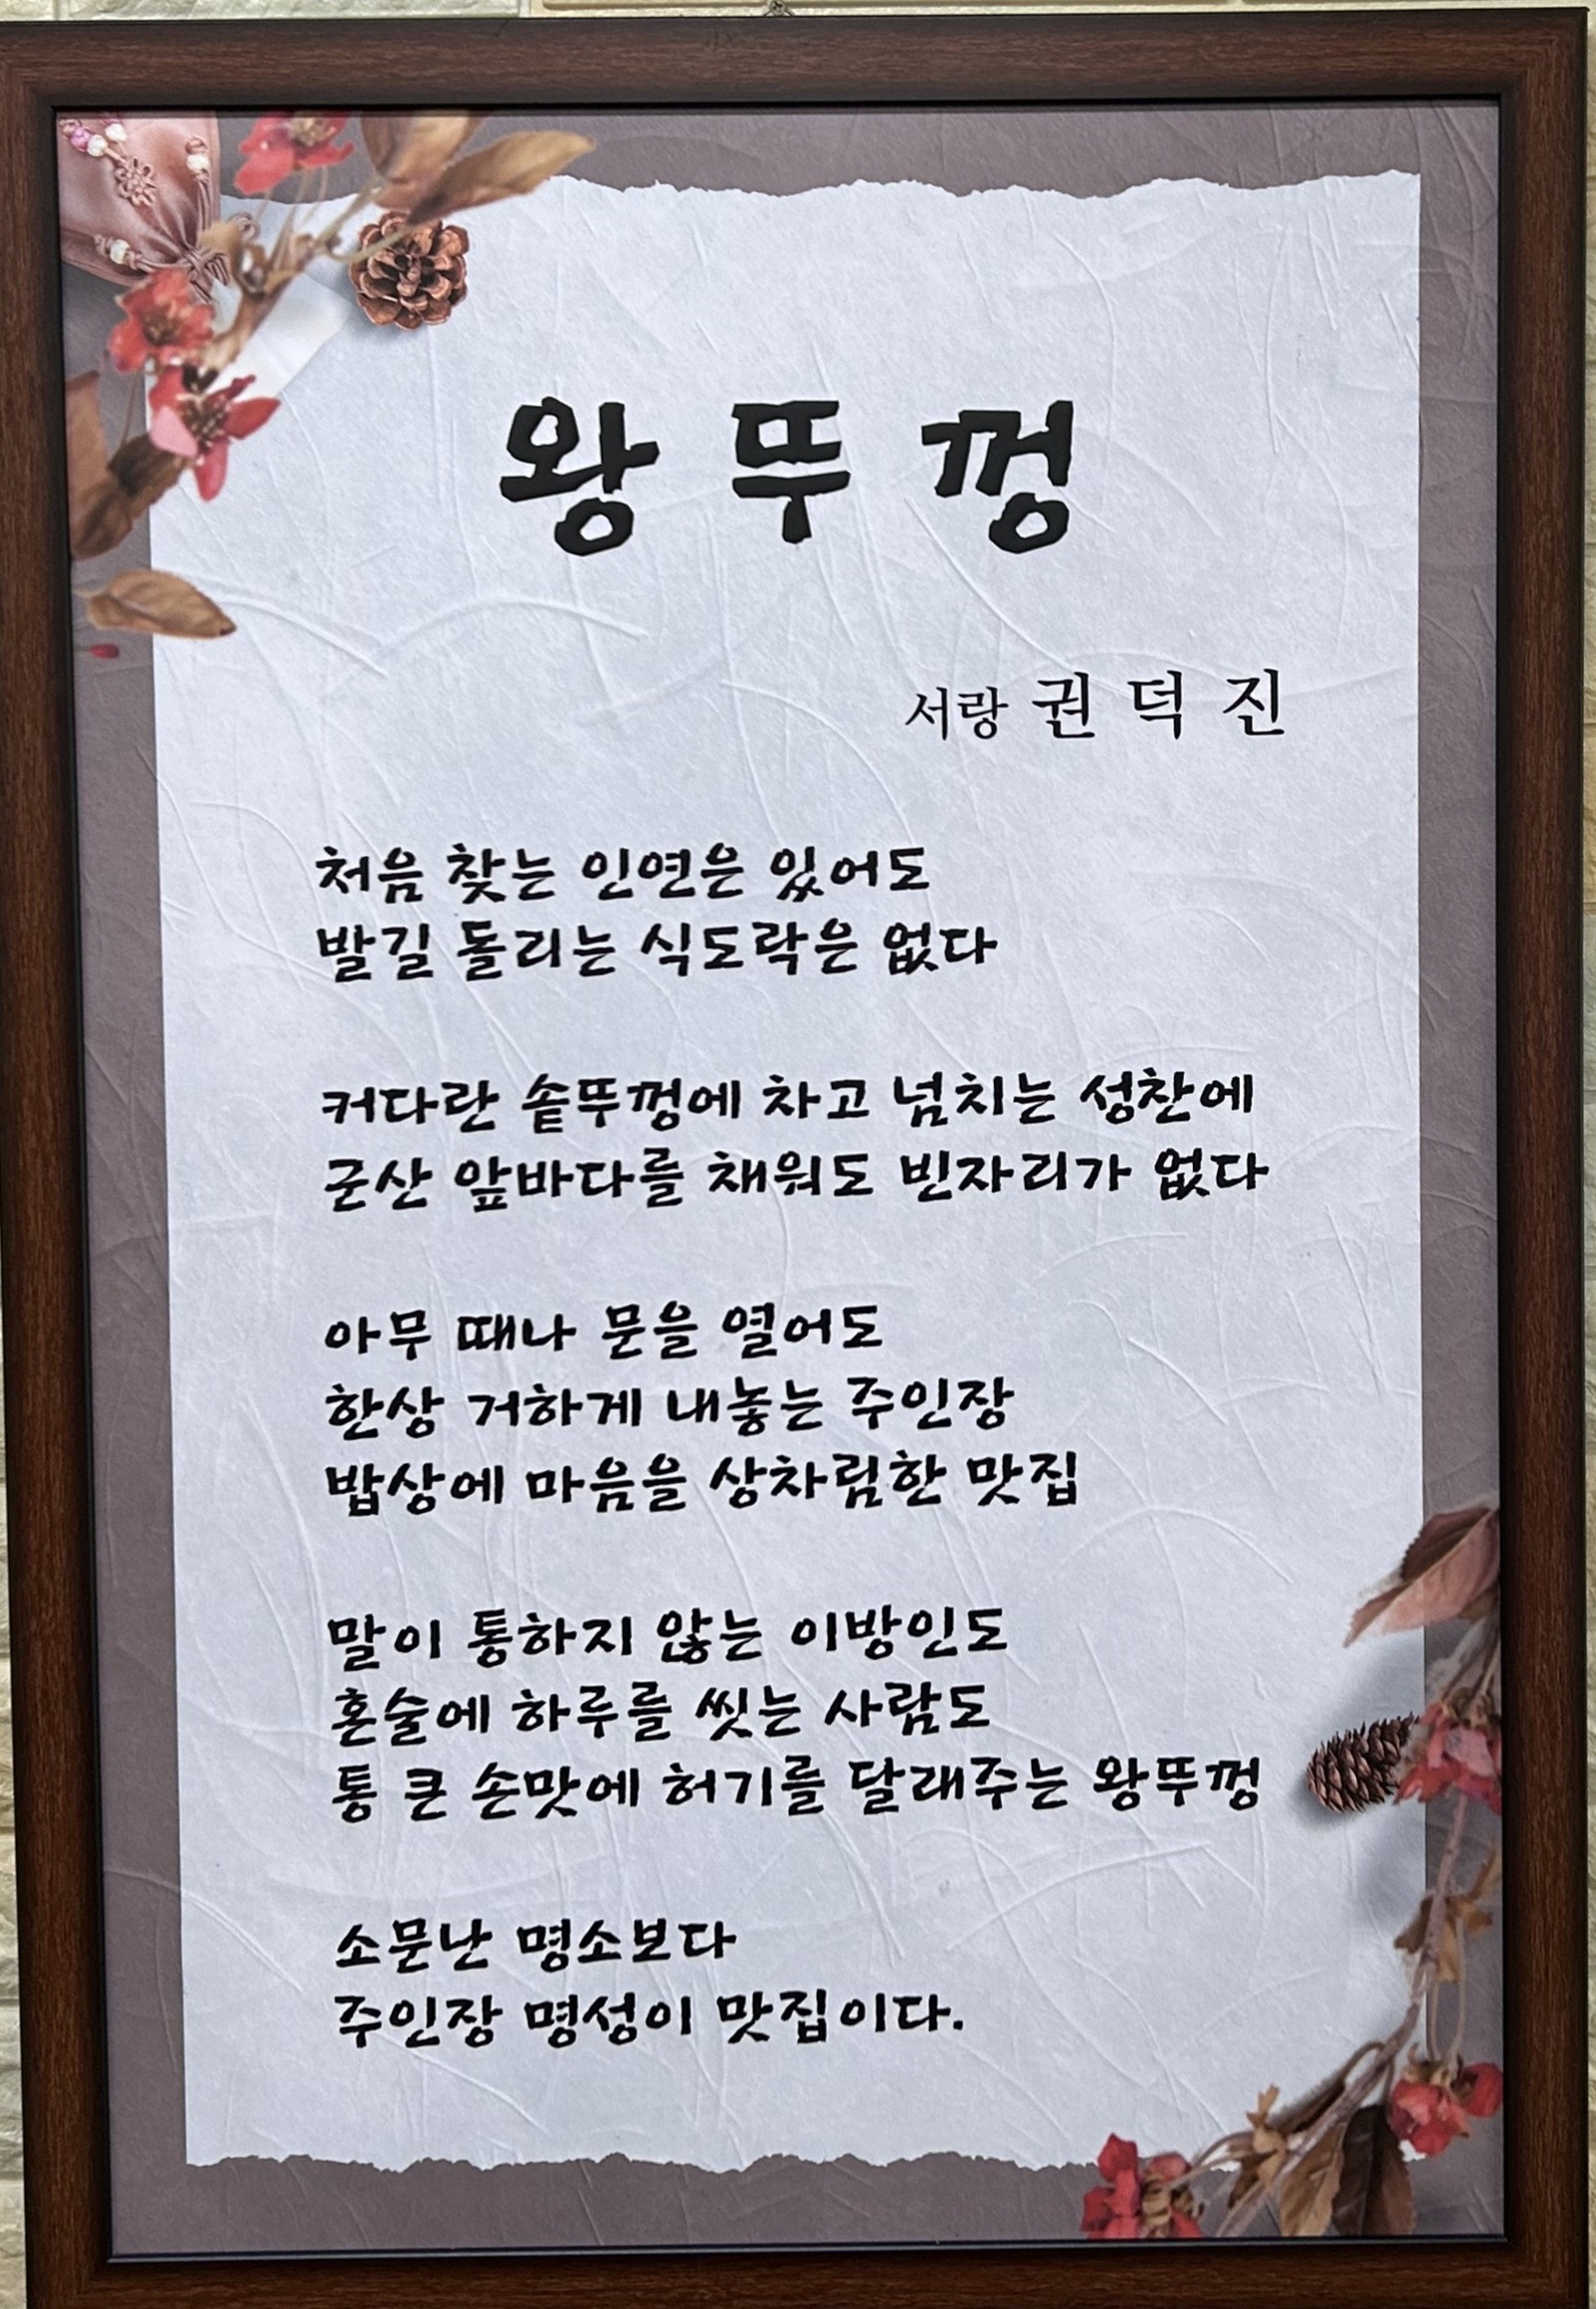 왕뚜껑
서랑 권덕진
처음 찾는 인연은 있어도
발길 돌리는 식도락은 없다
커다란 솥뚜껑에 차고 넘치는 성찬에
군산 앞바다를 채워도 빈자리가 없다
아무 때나 문을 열어도
한상 거하게 내놓는 주인장
밥상에 마음을 상차림한 맛집
말이 통하지 않는 이방인도
혼술에 하루를 씻는 사람도
통 큰 손맛에 허기를 달래주는 왕뚜껑
소문난 명소보다
주인장 명성이 맛집이다.